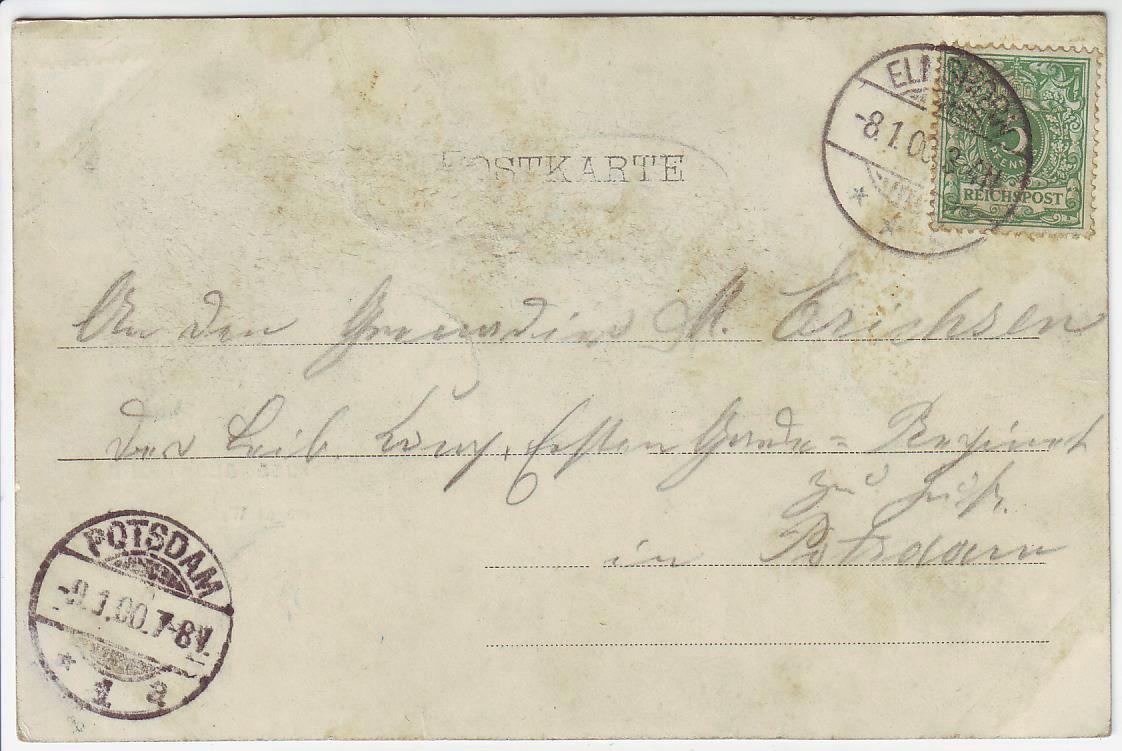 POSTKARTE
ELMSHORN
-8.1.00
5
PFENNIG
REICHSPOST
An den Grenadier M. Erichsen
der Leib Comp. Ersten Garde= Regiment
zu Fuß.
in Potsdam
POTSDAM
-9.1.00.7-8V.
1 a